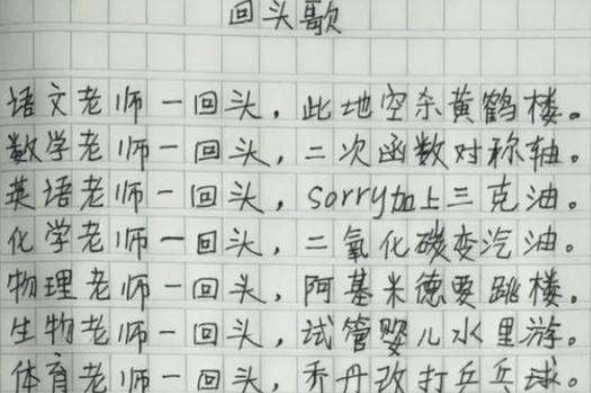 回头歌
语文老师一回头，此地空余黄鹤楼。
数学老师一回头，二次函数对称轴。
英语老师一回头，sorry加上三克油。
化学老师一回头，二氧化碳变汽油。
物理老师一回头，阿基米德要跳楼。
生物老师一回头，试管婴儿水里游。
体育老师一回头，乔丹改打乒乓球。